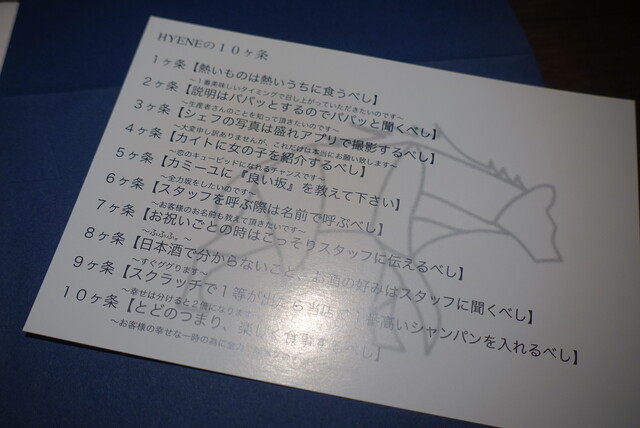 HYENEの１０ヶ条
１ヶ条【熱いものは熱いうちに食うべし】
〜１番美味しいタイミングで召し上がっていただきたいのです〜
２ヶ条【説明はパパッとするのでパパッと聞くべし】
〜生産者さんのことを知って頂きたいのです〜
３ヶ条【シェフの写真は盛れアプリで撮影するべし】
〜大変申し訳ありませんが、これだけは本当にお願い致します〜
４ヶ条【カイトに女の子を紹介するべし】
〜恋のキューピッドになれるチャンスです〜
５ヶ条【カミーユに『良い坂』を教えて下さい】
〜全力坂をしたいのです〜
６ヶ条【スタッフを呼ぶ際は名前で呼ぶべし】
〜お客様のお名前も教えて頂きたいです〜
７ヶ条【お祝いごとの時はこっそりスタッフに伝えるべし】
〜ふふふ。〜
８ヶ条【日本酒で分からないこと、お酒の好みはスタッフに聞くべし】
〜すぐググります〜
９ヶ条【スクラッチで１等が出たら当店に１番高いシャンパンを入れるべし】
〜幸せは分けると２倍になります
１０ヶ条【とどのつまり、楽しく べし】
〜お客様の幸せな一時の為に